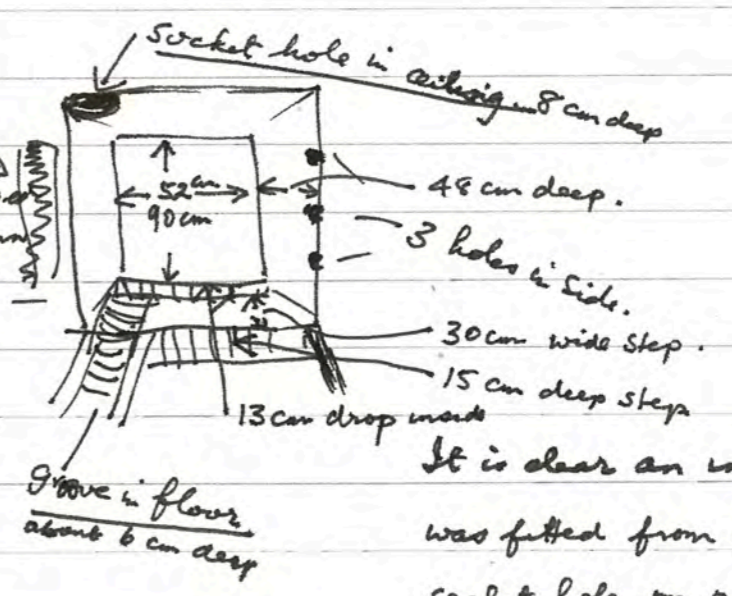 socket hole in ceiling 8 cm deep
52 cm
90 cm
48 cm deep.
3 holes in side.
30 cm wide step.
15 cm deep step
13 cm drop inside
groove in floor
about 6 cm deep
It is clear an
was fitted from
socket hole